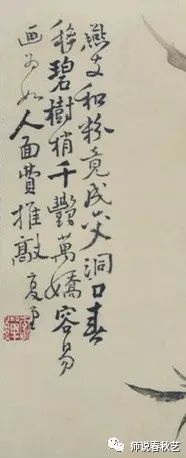 燕支和粉竟成交洞口春
移碧樹梢千豔萬嬌容易
画如人面費推敲 复堂
师说春秋艺